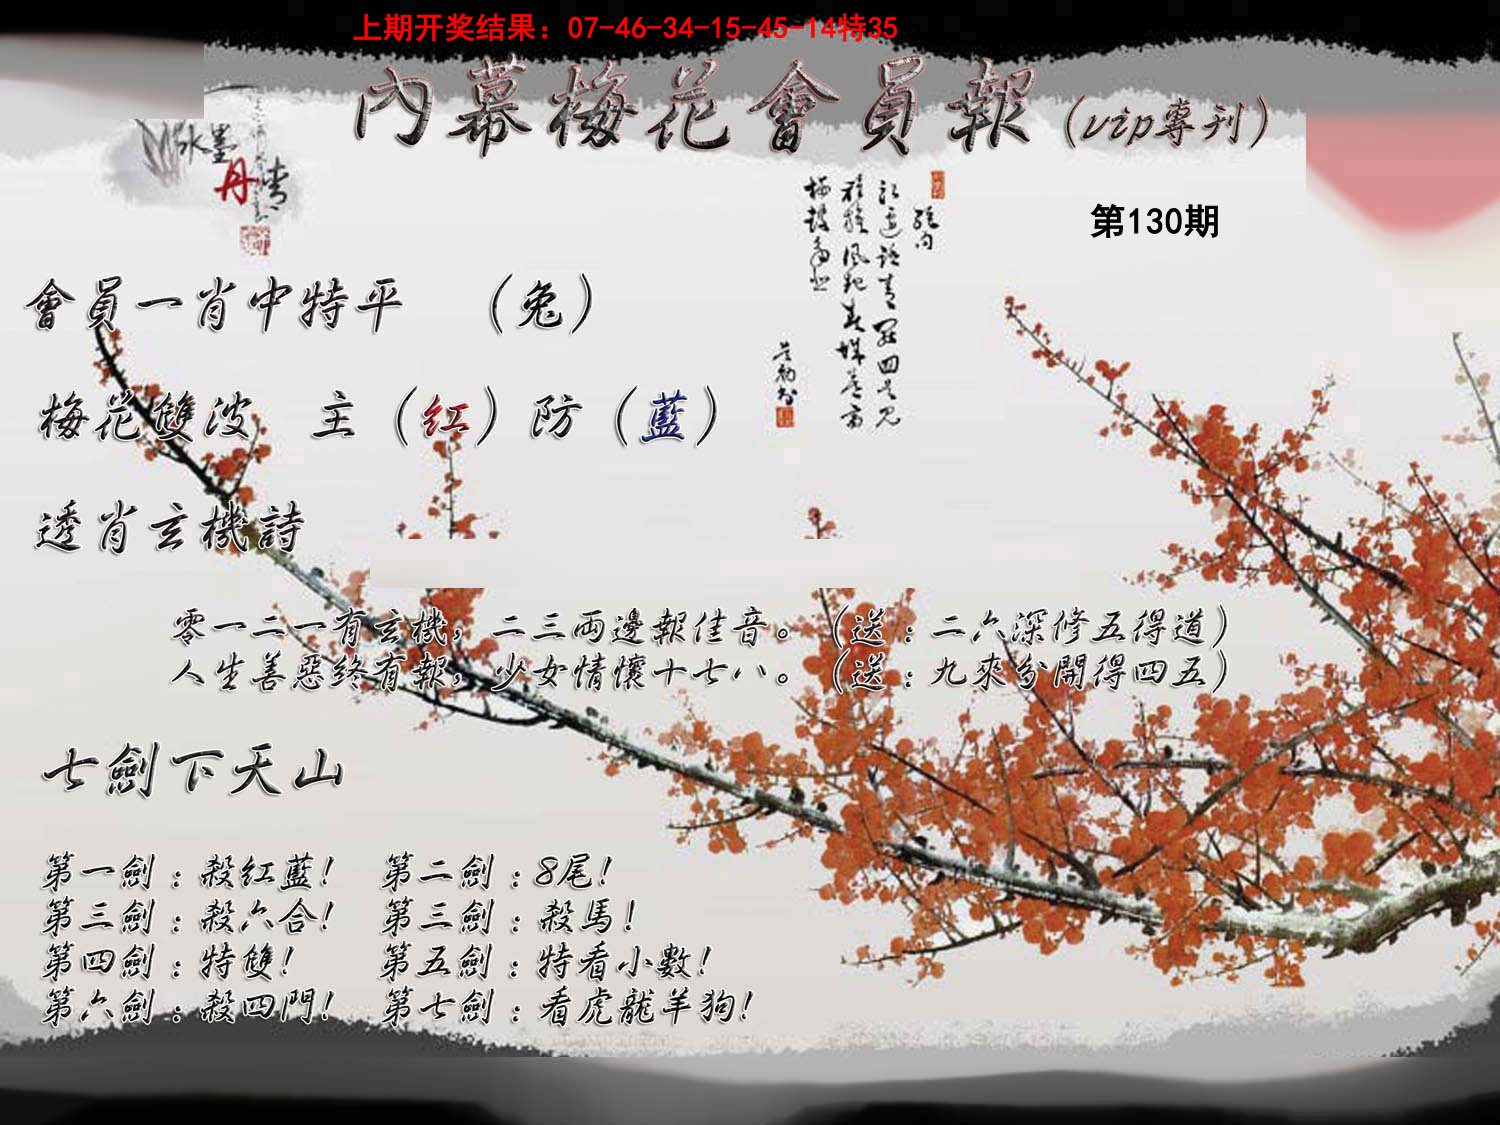 上期开奖结果：07-46-34-15-45-14特35
內幕梅花會員報（vip專刊）
水墨
丹青
第130期
會員一肖中特平　（兔）
梅花雙波　主（紅）防（藍）
透肖玄機詩
零一二一有玄機，二三兩邊報佳音。（送：二六深修五得道）
人生善惡終有報，少女情懷十七八。（送：九來分開得四五）
七劍下天山
第一劍：殺紅藍！　第二劍：8尾！
第三劍：殺六合！　第三劍：殺馬！
第四劍：特雙！　第五劍：特看小數！
第六劍：殺四門！　第七劍：看虎龍羊狗！